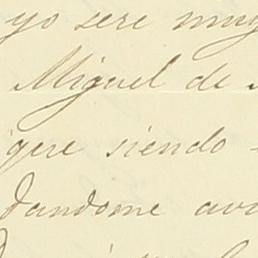 yo sere muy
Miguel de
siendo
dandome